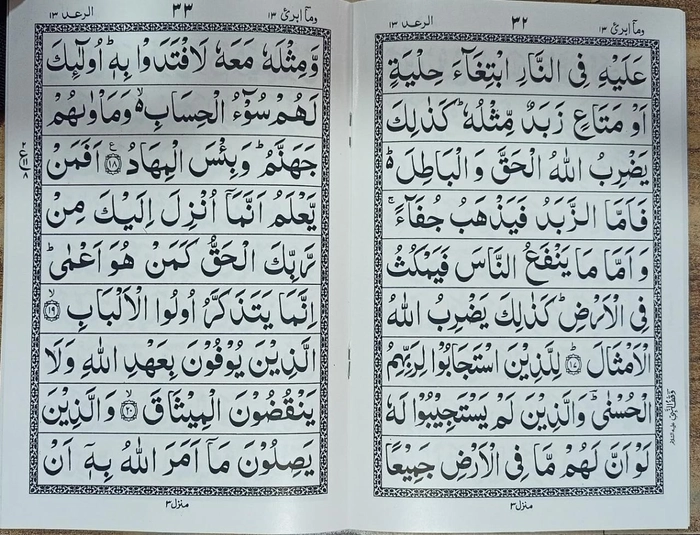 وما ابرئ ١٣
٣٢
الرعد ١٣
عَلَيْهِ فِى النَّارِ ابْتِغَآءَ حِلْيَةٍ
اَوْ مَتَاعٍ زَبَدٌ مِّثْلُهٗ ؕ كَذٰلِكَ
يَضْرِبُ اللّٰهُ الْحَقَّ وَ الْبَاطِلَ ۬ؕ
فَاَمَّا الزَّبَدُ فَيَذْهَبُ جُفَآءً ۚ
وَ اَمَّا مَا يَنْفَعُ النَّاسَ فَيَمْكُثُ
فِى الْاَرْضِ ؕ كَذٰلِكَ يَضْرِبُ اللّٰهُ
الْاَمْثَالَ ؕ ۝١٧ لِلَّذِيْنَ اسْتَجَابُوْا لِرَبِّهِمُ
الْحُسْنٰى ؔؕ وَالَّذِيْنَ لَمْ يَسْتَجِيْبُوْا لَهٗ
لَوْ اَنَّ لَهُمْ مَّا فِى الْاَرْضِ جَمِيْعًا
منزل ٣
وما ابرئ ١٣
٣٣
الرعد ١٣
وَّمِثْلَهٗ مَعَهٗ لَافْتَدَوْا بِهٖ ؕ اُولٰٓئِكَ
لَهُمْ سُوْٓءُ الْحِسَابِ ۙ۬ وَمَاْوٰىهُمْ
جَهَنَّمُ ؕ وَبِئْسَ الْمِهَادُ ۝١٨ اَفَمَنْ
يَّعْلَمُ اَنَّمَاۤ اُنْزِلَ اِلَيْكَ مِنْ
رَّبِّكَ الْحَقُّ كَمَنْ هُوَ اَعْمٰى ؕ
اِنَّمَا يَتَذَكَّرُ اُولُوا الْاَلْبَابِ ۙ۝١٩
الَّذِيْنَ يُوْفُوْنَ بِعَهْدِ اللّٰهِ وَلَا
يَنْقُضُوْنَ الْمِيْثَاقَ ۙ۝٢٠ وَالَّذِيْنَ
يَصِلُوْنَ مَاۤ اَمَرَ اللّٰهُ بِهٖۤ اَنْ
منزل ٣